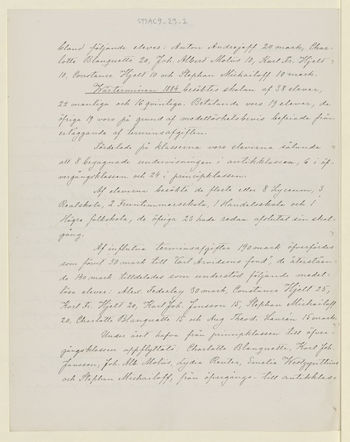 bland följande elever: Anton Andrejeff 20 mark, Char-
lotte Blanquette 20, Joh. Albert Molus 10, Karl Fr. Hjelt
10, Constance Hjelt 10 och Stephan Michailoff 10 mark.
Vårterminen 1884 besöktes skolan af 38 elever,
22 manliga och 16 qvinliga. Betalande voro 19 elever, de
öfriga 19 voro på grund af medellöshetsbevis befriade från
erläggande af terminsafgiften.
Fördelade på klasserna voro eleverna sålunda
att 8 begagnade undervisningen i antikklassen, 6 i öf-
vergångsklassen och 24 i principklassen.
Af eleverna besökte de flesta eller 8 Lyceum, 3
Realskola, 2 Fruntimmersskola, 1 Handelsskola och 1
Högre folkskola, de öfriga 23 hade redan afslutat sin skol-
gång.
Af influtna terminsafgifter 190 mark öfverfördes
som förut 50 mark till "Carl Arvidsons fond", de återstån-
de 140 mark tilldelades som understöd följande medel-
lösa elever: Alex. Federley 30 mark, Constance Hjelt 25,
Karl Fr. Hjelt 20, Karl Joh. Jansson 15, Stephan Michailoff
20, Charlotte Blanquette 15 och Aug. Theod. Laurén 15 mark.
Under året hafva från principklassen till öfver-
gångsklassen uppflyttats: Charlotte Blanquette, Karl Joh.
Jansson, Joh. Alb. Molus, Lydia Renter, Emelia
och Stephan Michailoff, från öfvergångs- till antikklas-